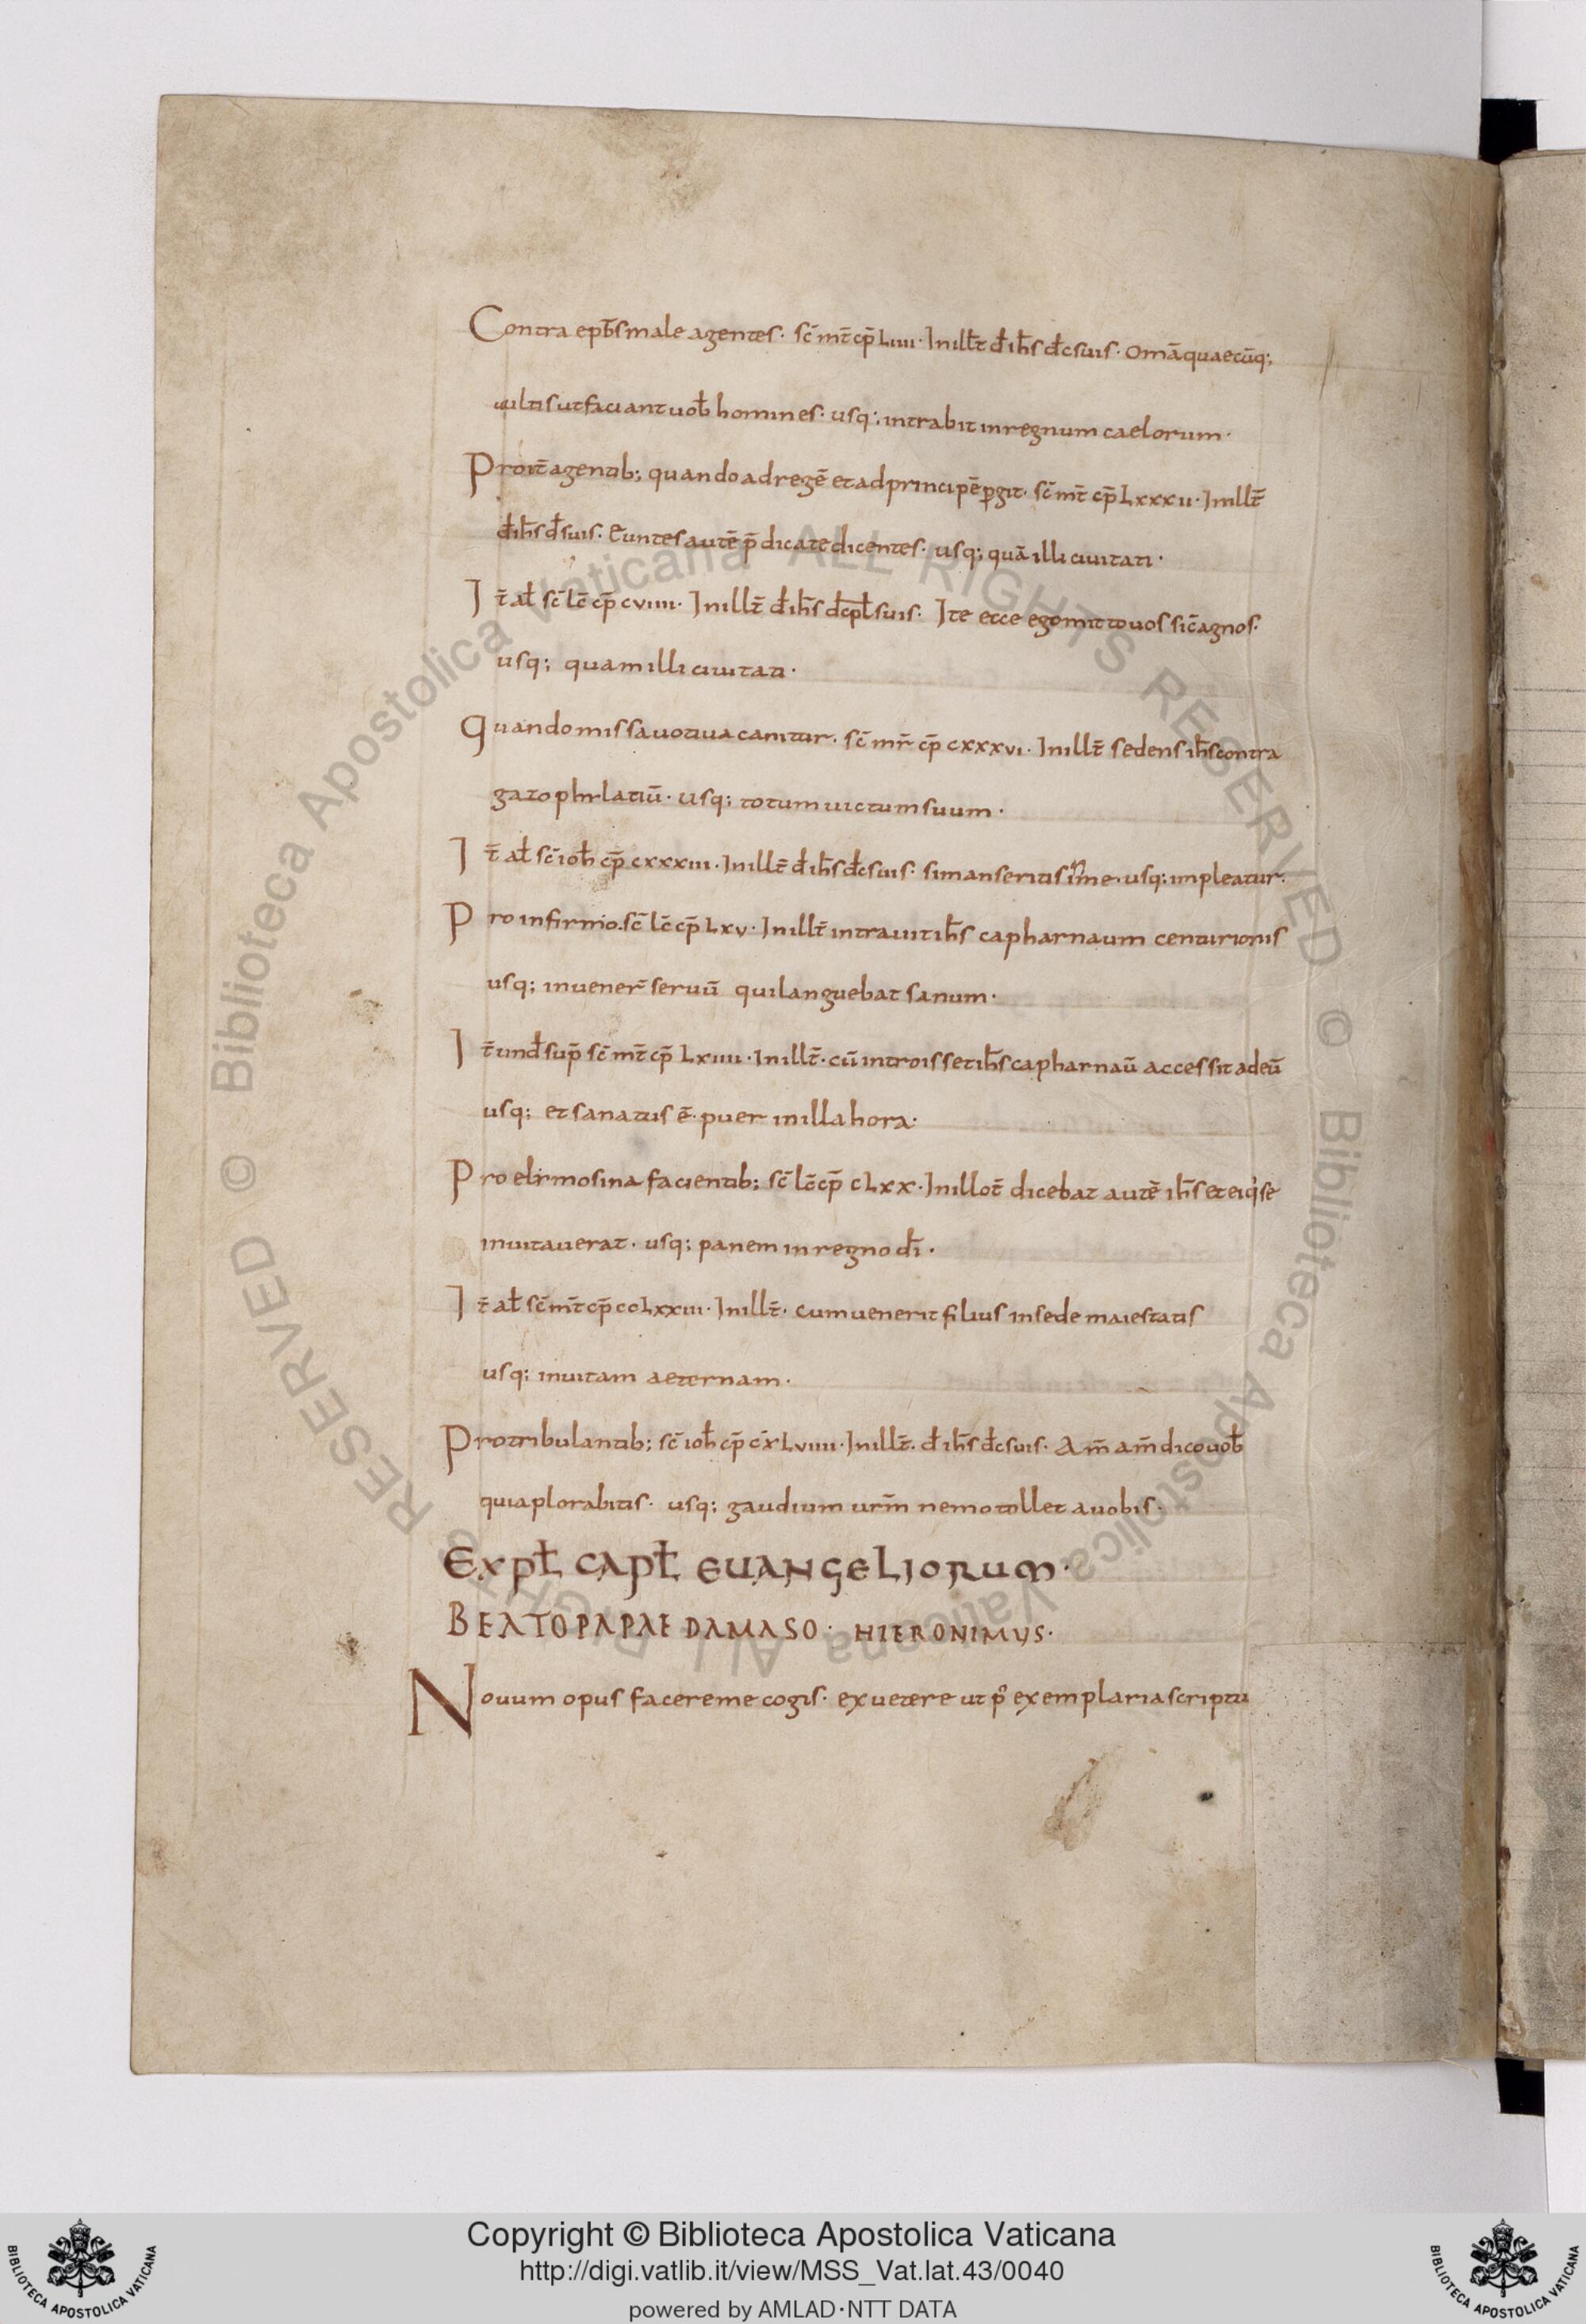 Contra epb̄s male agentes · sc̄ mt̄ cp̄ Liiii · In ill t̄ d̄ ih̄s dc̄ suis · Omā quaecūq;
uultis ut faciant uob̄ homines · usq; intrabit in regnum caelorum ·
Pro it̄ agentib; quando ad regē et ad principē ꝑgit · sc̄ mt̄ cp̄ Lxxxii · In ill t̄
d̄ ih̄s d̄ suis · Euntes autē p̄dicate dicentes · usq; quā illi ciuitati ·
It̄ al̄ sc̄ lc̄ cp̄ cviiii · In ill t̄ d̄ ih̄s dc̄pl̄ suis · Ite ecce ego mitto uos sic̄ agnos ·
usq; quam illi ciuitati ·
Quando missa uotiua canitur · sc̄ mr̄ cp̄ cxxxvi · In ill t̄ sedens ih̄s contra
gazophilatiū · usq; totum uictum suum ·
It̄ al̄ sc̄ ioh̄ cp̄ cxxxiii · In ill t̄ d̄ ih̄s dc̄ suis · si manseritis in me · usq; impleatur ·
Pro infirmo · sc̄ lc̄ cp̄ Lxv · In ill t̄ intrauit ih̄s capharnaum centurionis
usq; inuener̄ seruū qui languebat sanum ·
It̄ und̄ sup̄ sc̄ mt̄ cp̄ Lxiiii · In ill t̄ · cū introisset ih̄s capharnaū accessit ad eū
usq; et sanatus ē · puer in illa hora ·
Pro elimosina facientib; sc̄ lc̄ cp̄ cLxx · In illo t̄ dicebat autē ih̄s et ei q̇ se
inuitauerat · usq; panem in regno dī ·
It̄ al̄ sc̄ mt̄ cp̄ ccLxxiii · In ill t̄ · cum uenerit filius in sede maiestatis
usq; in uitam aeternam ·
Pro tribulantib; sc̄ ioh̄ cp̄ cxLviiii · In ill t̄ · d̄ ih̄s dc̄ suis · Am̄ am̄ dico uob̄
quia plorabitis · usq; gaudium urm̄ nemo tollet a uobis ·
Expl̄ capl̄ euangeliorum ·
BEATO PAPAE DAMASO · HIERONIMUS ·
Nouum opus facere me cogis · ex uetere ut p̄ exemplaria scriptu
Copyright © Biblioteca Apostolica Vaticana
http://digi.vatlib.it/view/MSS_Vat.lat.43/0040
powered by AMLAD·NTT DATA
BIBLIOTECA APOSTOLICA VATICANA
BIBLIOTECA APOSTOLICA VATICANA
© Biblioteca Apostolica Vaticana ALL RIGHTS RESERVED © Biblioteca Apostolica Vaticana ALL RIGHTS RESERVED